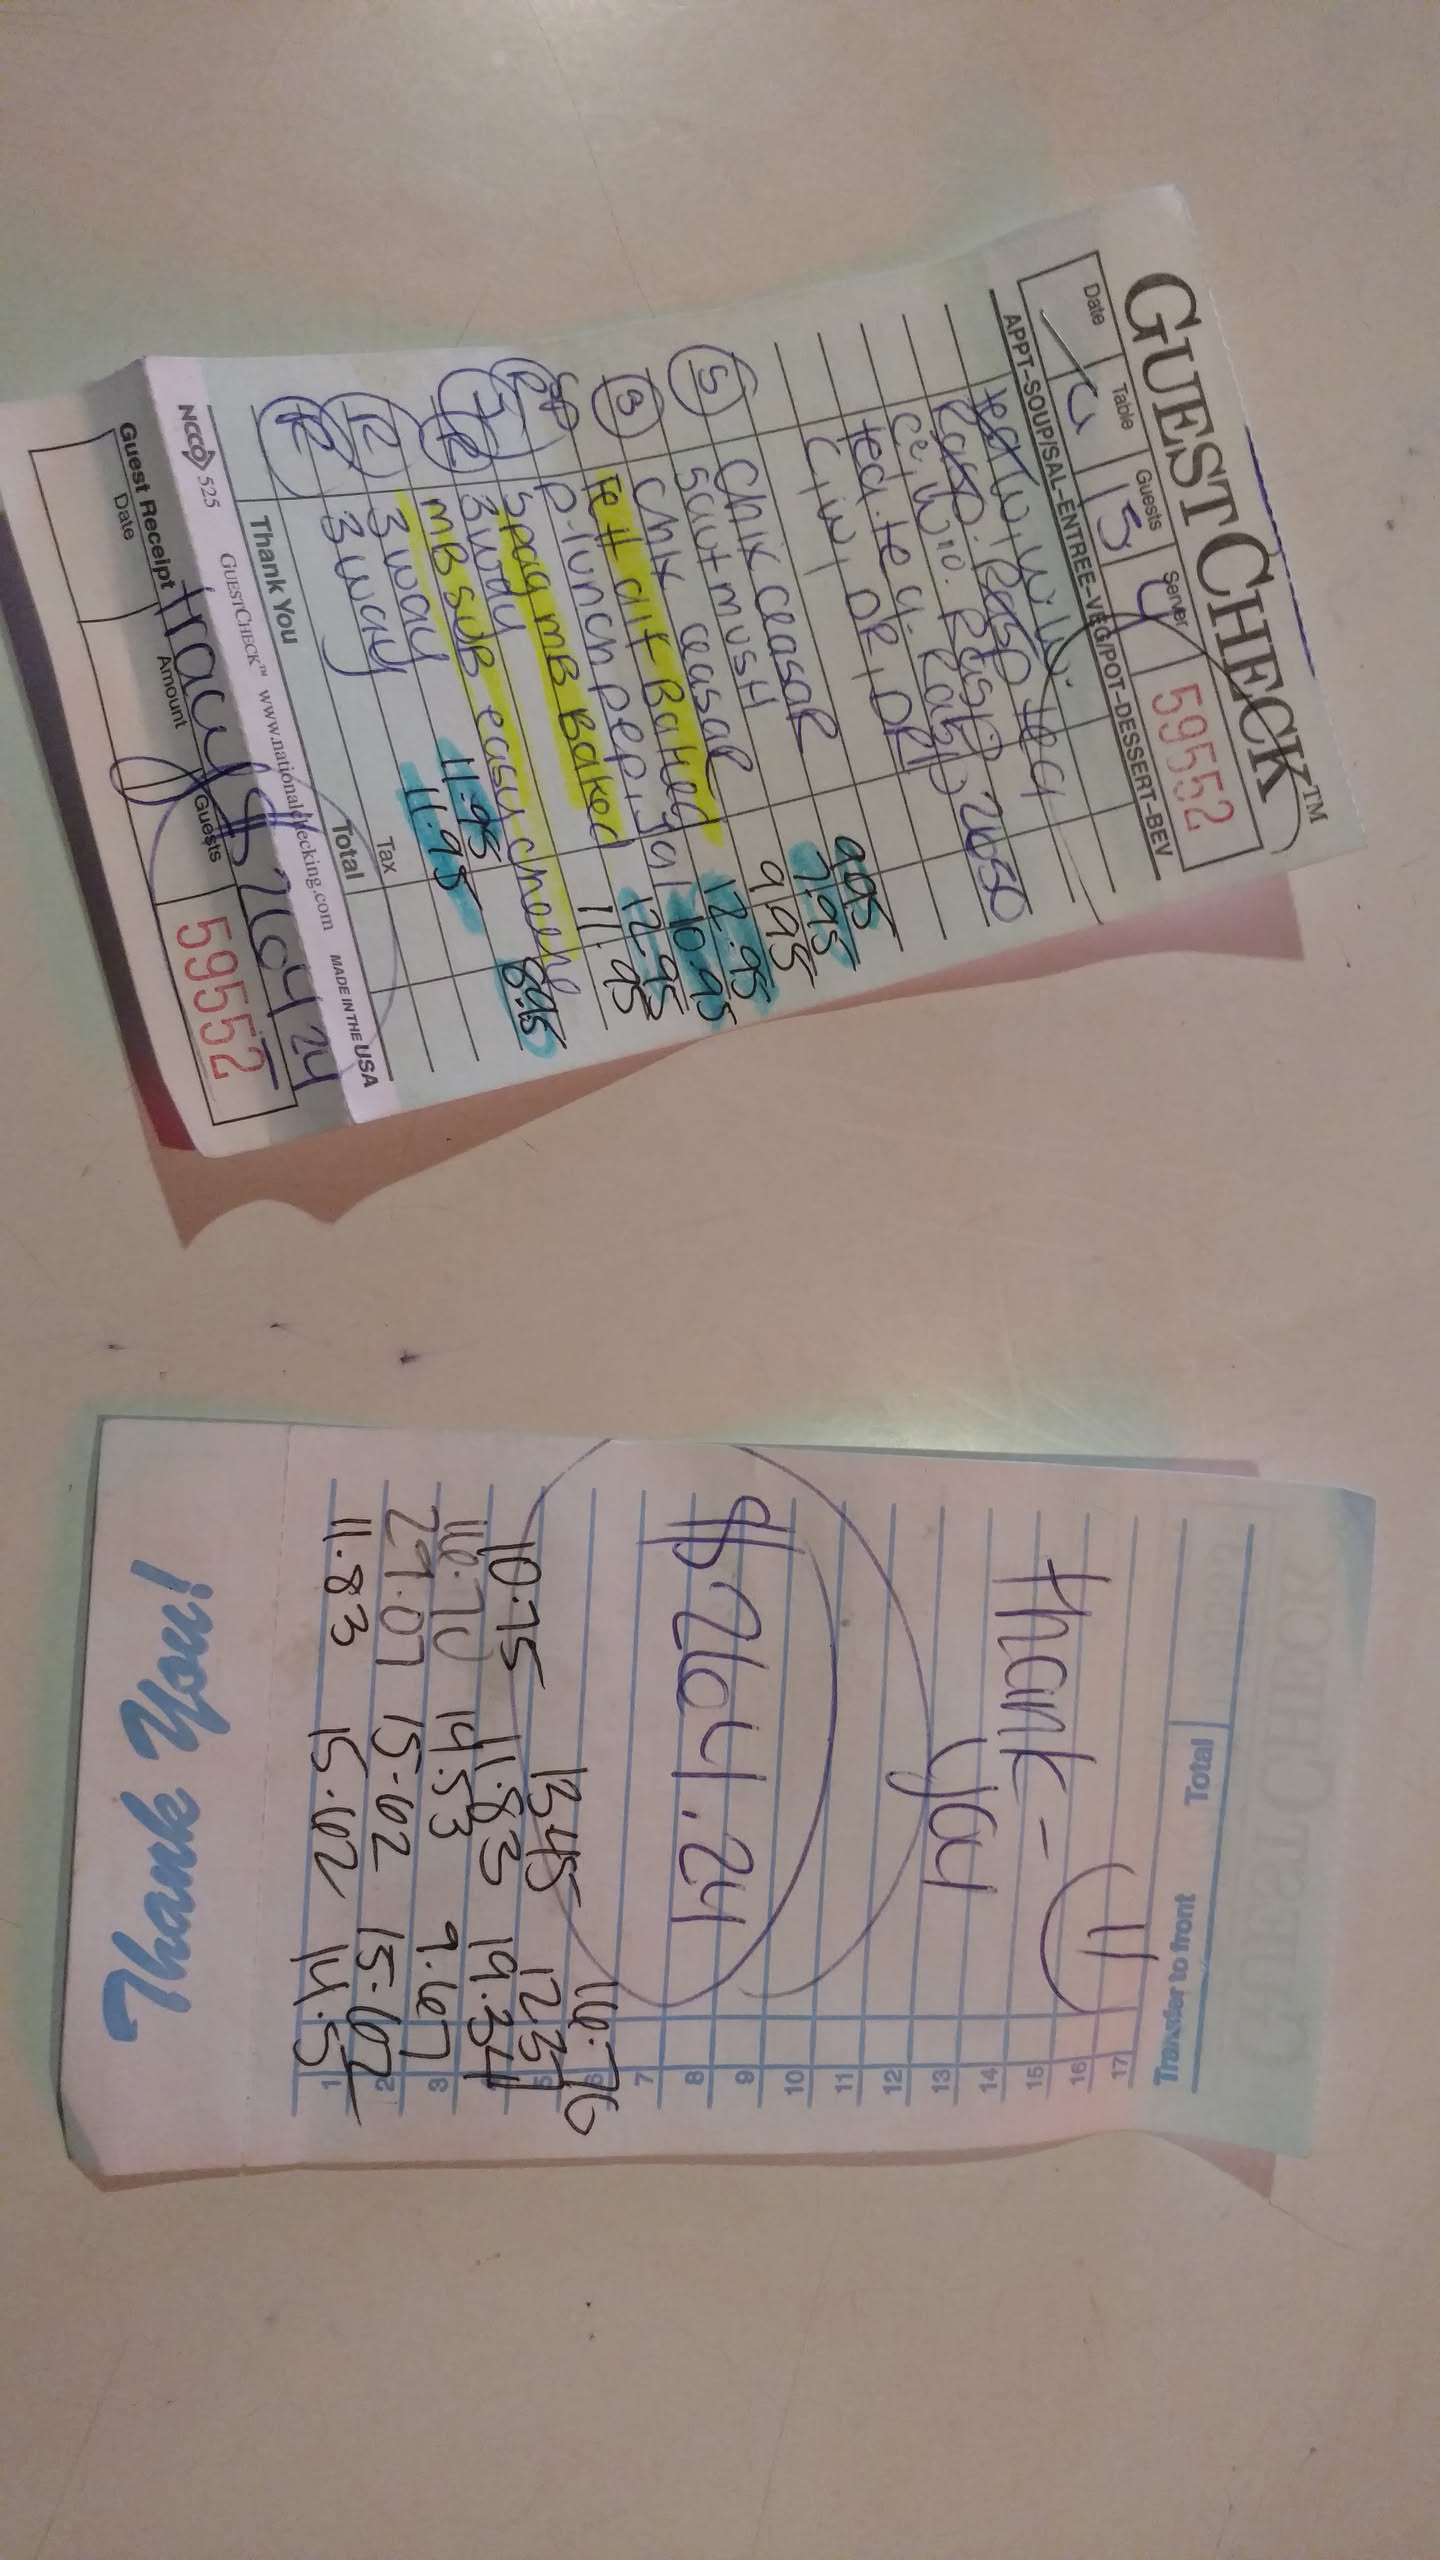 GUESTCHECK™
Date Table Guests Server
15 4 59552
APPT-SOUP/SAL-ENTREE-VEG/POT-DESSERT-BEV
Rasp tea
2650
tea. tea.
DR, DR
chix ceasar 9.95
saut mush 7.95
chix ceasar 9.95
Fett alf Baked 12.95
p-lunch pep, 10.95
spag mB Baked 12.95
3 way 11.95
mB sub easy cheese 8.95
3 way 11.95
3 way 11.95
Tax
Total
Thank You
NCCO 525 GUESTCHECK™ www.nationalchecking.com MADE IN THE USA
Tracy $ 264 24
Guest Receipt
Date Amount Guests
59552
GUESTCHECK
Total
Transfer to front
17
16
Thank-
15
14
you
13
12
11
10
9
$264.24
8
7
6 16.76
5 13.45
10.75 11.83 19.34
14.53 9.67
3
29.07 15.02 15.02
2
11.83 15.02 14.5
1
Thank You!